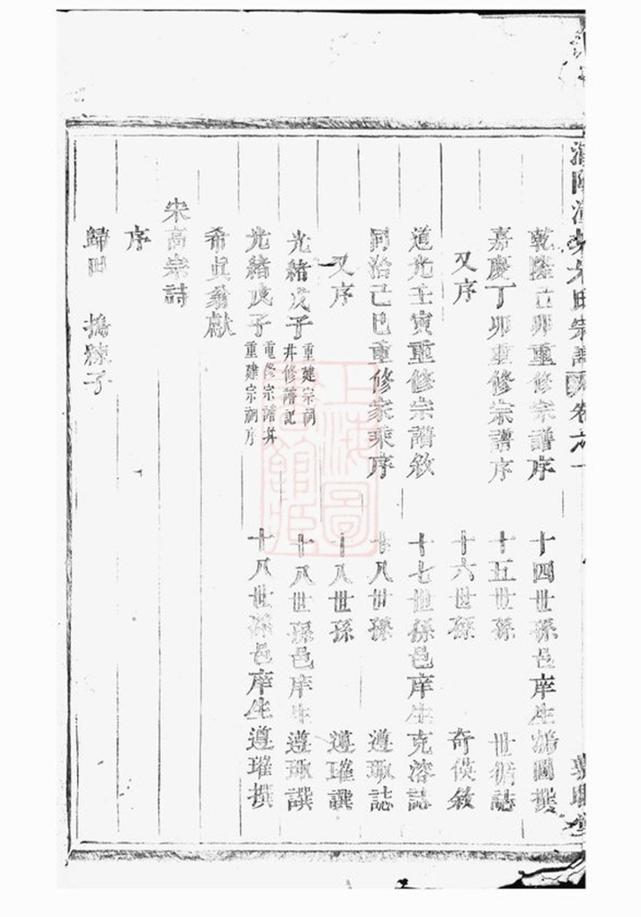 宗譜 卷
乾隆乙卯重修宗譜序 十四世孫邑庠生鵷圖撰
嘉慶丁卯重修宗譜序 十五世孫 世循誌
又序 十六世孫 奇偀敘
道光壬寅重修宗譜敘 十七世孫邑庠生克溶誌
同治己巳重修家乘序 十八世孫 遵璥誌
又序 十八世孫 遵璀譔
光緒戊子重建宗祠并修譜記 十八世孫邑庠生遵璥譔
光緒戊子重修宗譜并重建宗祠序 十八世孫邑庠生遵璀撰
希眞翁獻
宋高宗詩
序
歸田 擣練子
上海圖書館藏